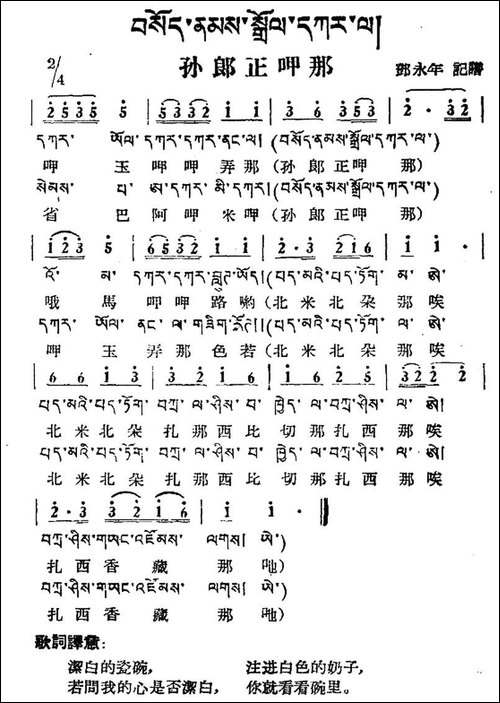 བསོད་ནམས་སྒྲོལ་དཀར་ལ།
孙郎正呷那
2/4
鄧永年 記譜
2 5 3 5 5 | 5 3 3 2 1 1 | 3 6 3 5 3 | 2 · 3 2 |
དཀར་ ཡོལ་ དཀར་དཀར་ནང་ལ། (བསོད་ནམས་སྒྲོལ་དཀར་ ལ་)
呷 玉 呷呷弄那 (孙郎正呷 那)
སེམས་ པ་ ཨ་དཀར་ མི་དཀར། (བསོད་ནམས་སྒྲོལ་དཀར་ ལ་)
省 巴 阿呷米呷 (孙郎正呷 那)
1 2 3 5 | 6 5 3 2 1 1 | 2 · 3 2 1 6 | 1 1 · |
འོ་ མ་ དཀར་དཀར་བླུཊ་ཡོད། (པད་མའི་པད་ཏོག་ མ་ ཨེ་
哦 馬 呷呷路喲 (北米北朶 那 唉
དཀར་ ཡོལ་ ནང་ ལ་ གཟིག་རོཊ།། (པད་མའི་པད་ཏོག་ ལ་ ཨེ་
呷 玉 弄那色若 (北米北朶 那 唉
6 6 1 3 | 3 2 1 6 | 1 6 2 5 | 3 2 2 2 |
པད་མའི་པད་ཏོག་ བཀྲ་ ལ་ཤིས་ བ་ ཁྱེད་ ལ་བཀྲ་ཤིས་ ལ་ ཨེ།
北米北朶 扎那西比 切那扎西 那 唉
པད་མའི་པད་ཏོག་ བཀྲ་ ལ་ཤིས་ བ་ ཁྱེད་ ལ་བཀྲ་ཤིས་ ལ་ ཨེ།
北米北朶 扎那西比 切那扎西 那 唉
2 · 3 3 2 1 6 | 1 1 · ‖
བཀྲ་ཤིས་གཡང་འཛོམས་ ལགས། ཨེ་)
扎西香藏 那 吔)
བཀྲ་ཤིས་གཡང་འཛོམས་ ལགས། ཨེ་)
扎西香藏 那 吔)
歌詞譯意:
潔白的瓷碗, 注进白色的奶子,
若問我的心是否潔白, 你就看看碗里。